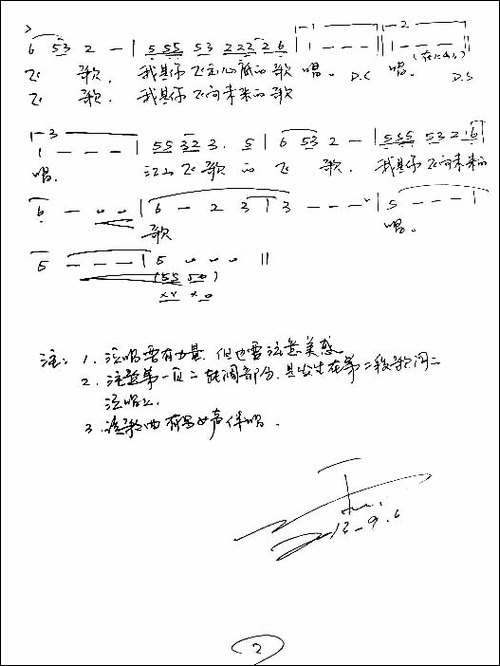 6 53 2 – | 5 555 53 222 2 6 | 1 – – – | 1 – – – |
飞 歌。 我是你飞 心底的歌 唱。 D.C 唱。 D.S
飞 歌。 我是你飞向未来的歌
1 – – – | 55 32 3. 5 | 6 53 2 – | 555 53 2 1 6 |
唱。 江山飞歌 的 飞 歌. 我是你飞向未来的
6 – | 6 – 2 3 1 | 3 – – – | 5 – – – |
歌 唱。
5 – – – | 5 0 0 0 ||
(55 50)
xx x 0
注: 1. 演唱要有力量, 但也要注意美感
2. 注意第一页 转调部分, 是发生在第二段歌词
演唱上.
3. 该歌曲有男女声伴唱.
12-9.6
2